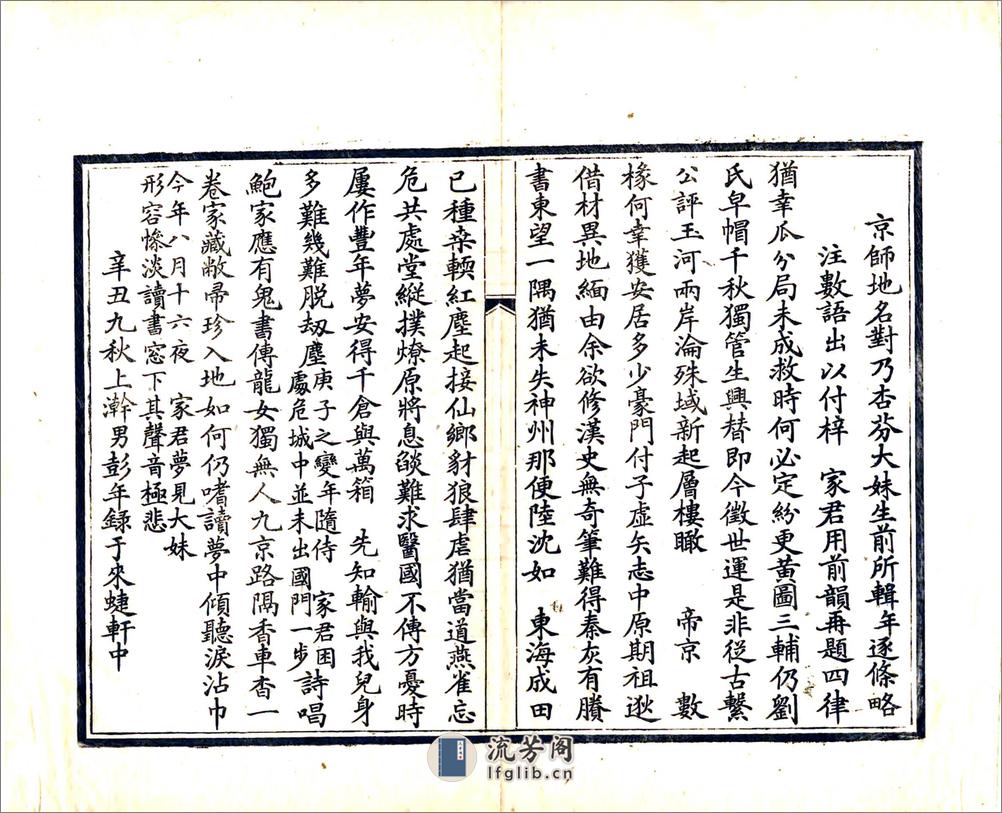 京師地名對乃杏芬大妹生前所輯年逐條略
注數語出以付梓　家君用前韻再題四律
猶幸瓜分局未成救時何必定紛更黃圖三輔仍劉
氏皁帽千秋獨管生興替即今徵世運是非從古繫
公評玉河兩岸淪殊域新起層樓瞰　帝京　數
椽何幸獲安居多少豪門付子虛矢志中原期祖逖
借材異地緬由余欲修漢史無奇筆難得秦灰有賸
書東望一隅猶未失神州那便陸沈如　東海成田
已種桒輭紅塵起接仙鄉豺狼肆虐猶當道燕雀忘
危共處堂縱撲燎原將息燄難求醫國不傳方憂時
屢作豐年夢安得千倉與萬箱　先知輸與我兒身
多難幾難脫刼塵庚子之變年隨侍　家君困
處危城中並未出國門一步詩唱
鮑家應有鬼書傳龍女獨無人九京路隔香車杳一
卷家藏敝帚珍入地如何仍嗜讀夢中傾聽淚沾巾
今年八月十六夜　家君夢見大妹
形容慘淡讀書窓下其聲音極悲
辛丑九秋上澣男彭年錄于來蜨軒中
流芳阁
lfglib.cn